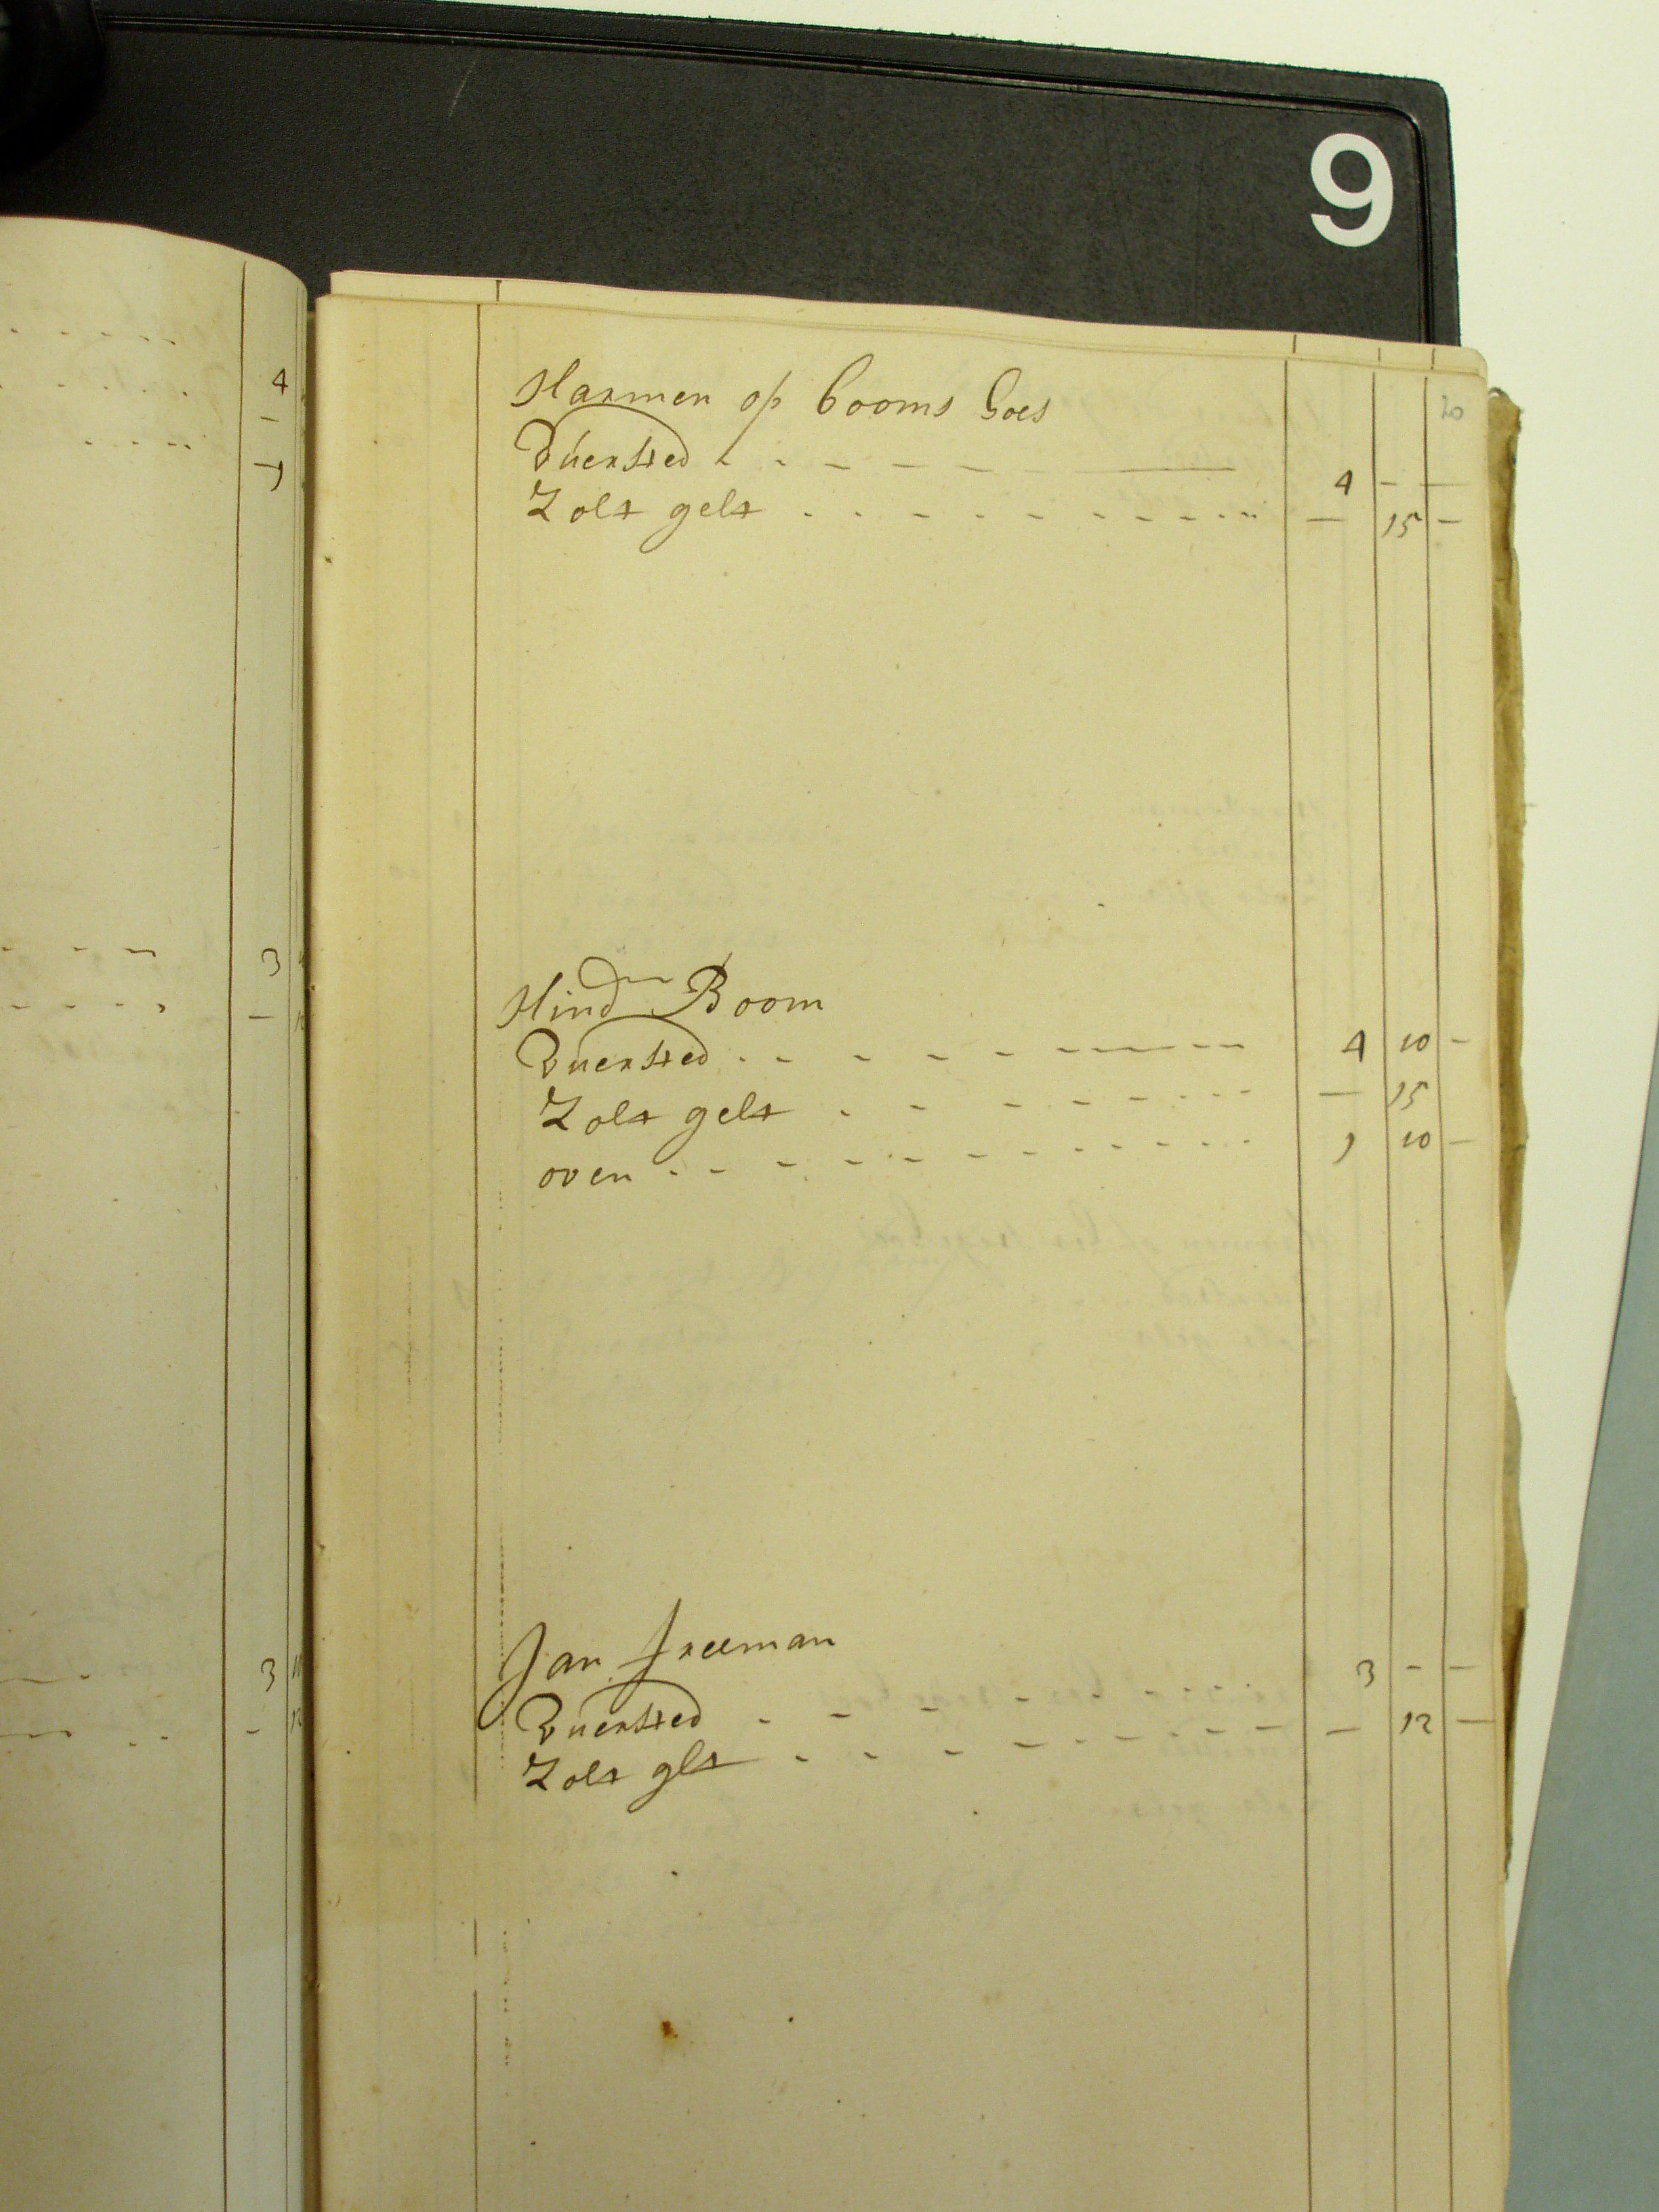 9
20
Harmen op booms Goes
Vuersted - - - - - 4 - -
Zolt gelt - - - - - - 15 -
Hind Boom
Vuersted - - - - - 4 10 -
Zolt gelt - - - - - - 15
oven - - - - - 1 10 -
Jan freeman
Vuersted - - - - - 3 - -
Zolt glt - - - - - - 12 -
4
-
1
3
-
3
-